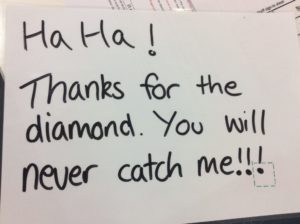 Ha Ha!
Thanks for the
diamond. You will
never catch me!!!